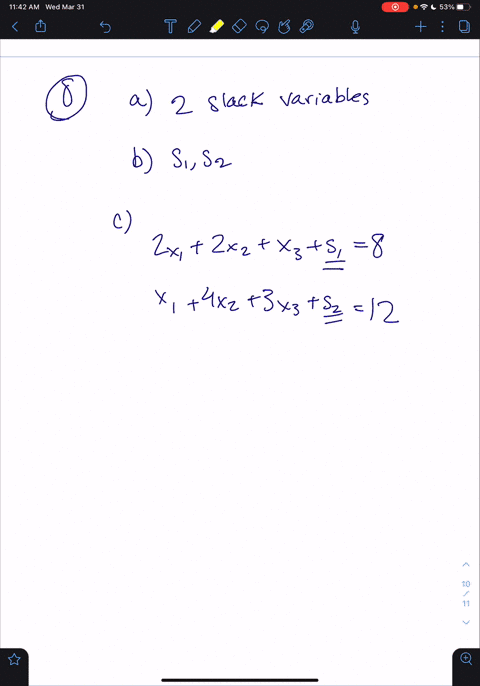 11:42 AM Wed Mar 31
53%
8
a) 2 slack variables
b) S₁, S₂
c)
2x₁ + 2x₂ + x₃ + S₁ = 8
x₁ + 4x₂ + 3x₃ + S₂ = 12
10
/
11